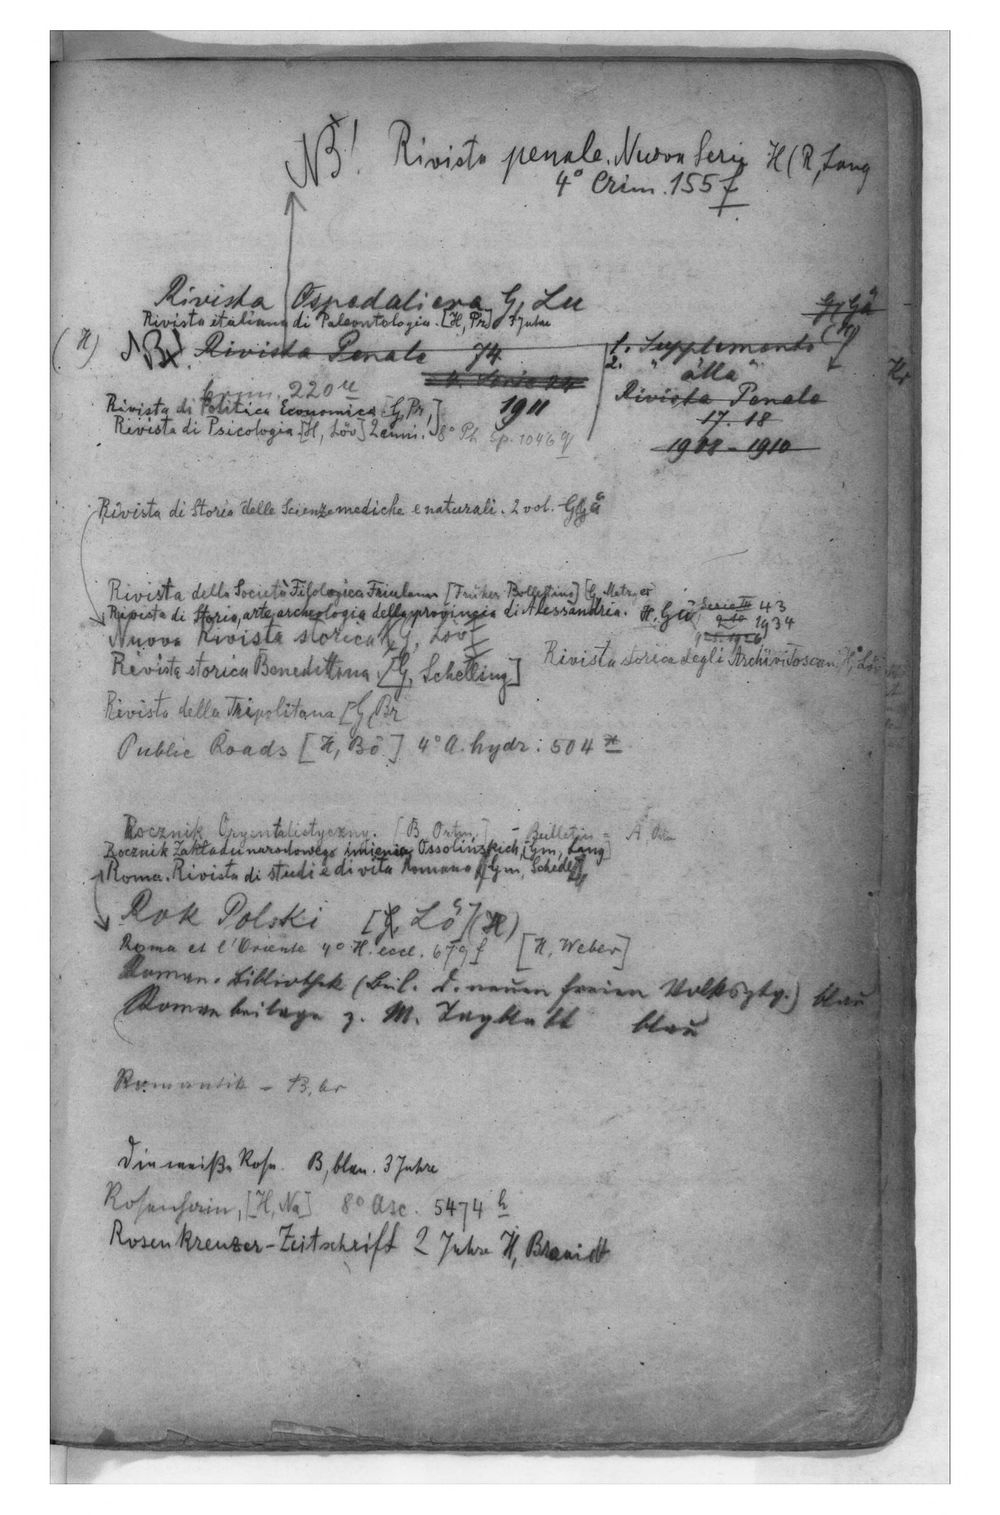 NB! Rivista penale. Nuova Serie H (R, Lang
4° Crim. 155 f
Rivista Ospedaliera G, Lu
G, Gä
Rivista italiana di Paleontologia. [H, Pr] 3 Jahre
(H) NB! Rivista Penale 74
1. Supplemento
2. " alla "
Rivista Penale
17. 18
1908 - 1910
Crim. 220 u
1911
Rivista di Politica Economica [G, Pr,]
Rivista di Psicologia [H, Löv] 2 anni. 8° Ph. Sp. 1046 q
Rivista di Storia delle Scienze mediche e naturali. 2 vol. G, Gä
Rivista della Società Filologica Friulana [Früher Bollettino] [G, Metzger
Rivista di Storia, arte, archeologia della provincia di Alessandria. H. Gü Serie III 43
1934
Nuova Rivista storica [G, Löv]
Rivista storica degli Archivi Toscani H, Löv
Rivista storica Benedettina. [G, Schelling]
Rivista della Tripolitana [G, Br
Public Roads [H, Bö] 4° A. hydr. 504 m
Rocznik Oryentalistyczny. [B, Ortm.] - Bulletin =
Rocznik Zakładu narodowego imienia Ossolińskich, [Gm, Lang]
Roma. Rivista di studi e di vita Romana [Gm, Schedl]
Rok Polski [G, Lö] (H)
Roma et l'Oriente 4° H. eccl. 679 f [H, Weber]
Roman-Bibliothek (Beil. d. neuen freien Volksztg.) blau
Romanbeilage z. M. Tagblatt blau
Romantik - B, br
Die weiße Rose. B, blau. 3 Jahre
Rosenhain, [H, Na] 8° Asc. 5474 h
Rosenkreuzer-Zeitschrift 2 Jahre H, Brandt